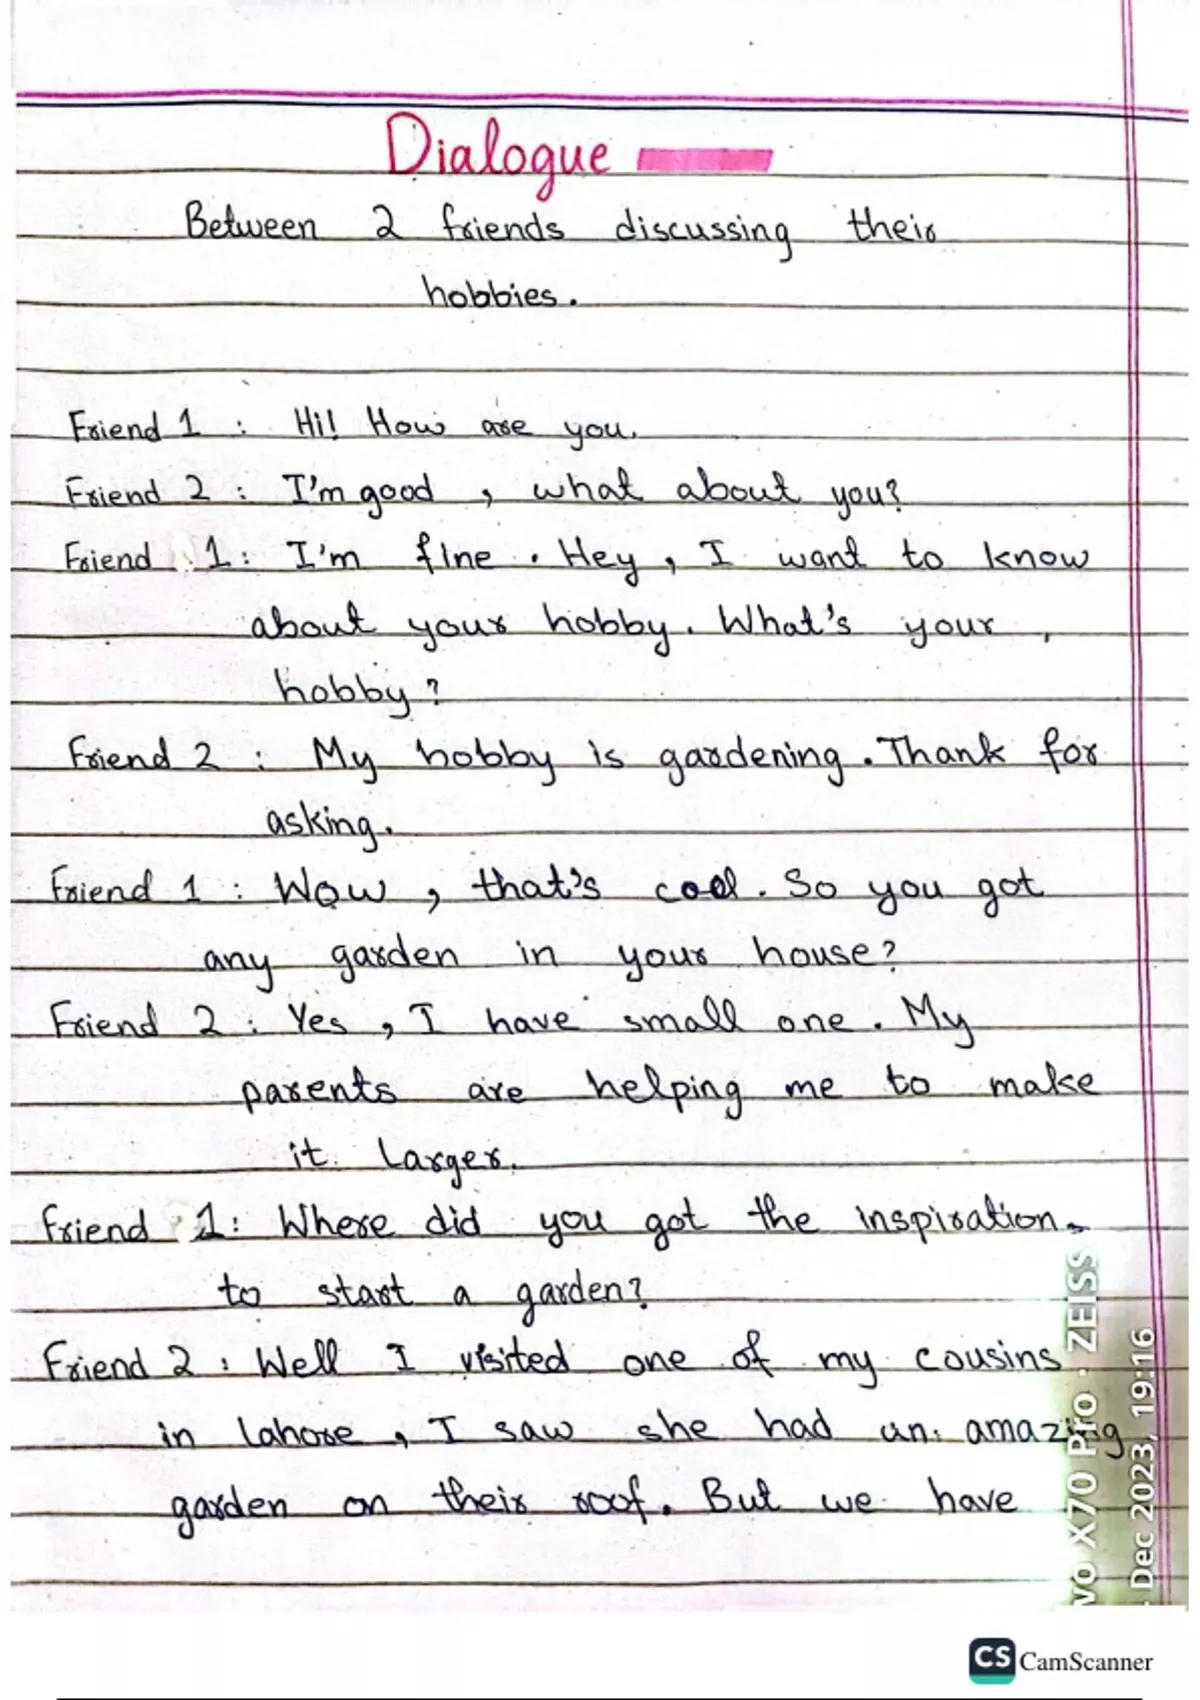 Dialogue
Between 2 friends discussing their
hobbies.
Friend 1 : Hi! How are you.
Friend 2 : I'm good , what about you?
Friend 1 : I'm fine . Hey , I want to know
about your hobby. What's your
hobby?
Friend 2 : My hobby is gardening. Thank for
asking.
Friend 1 : Wow , that's cool. So you got
any garden in your house?
Friend 2 : Yes , I have small one. My
parents are helping me to make
it larger.
Friend 1 : Where did you got the inspiration
to start a garden?
Friend 2 : Well I visited one of my cousins
in lahore , I saw she had an amazing
garden on their roof. But we have
vo X70 Pro · ZEISS
Dec 2023, 19:16
CS CamScanner